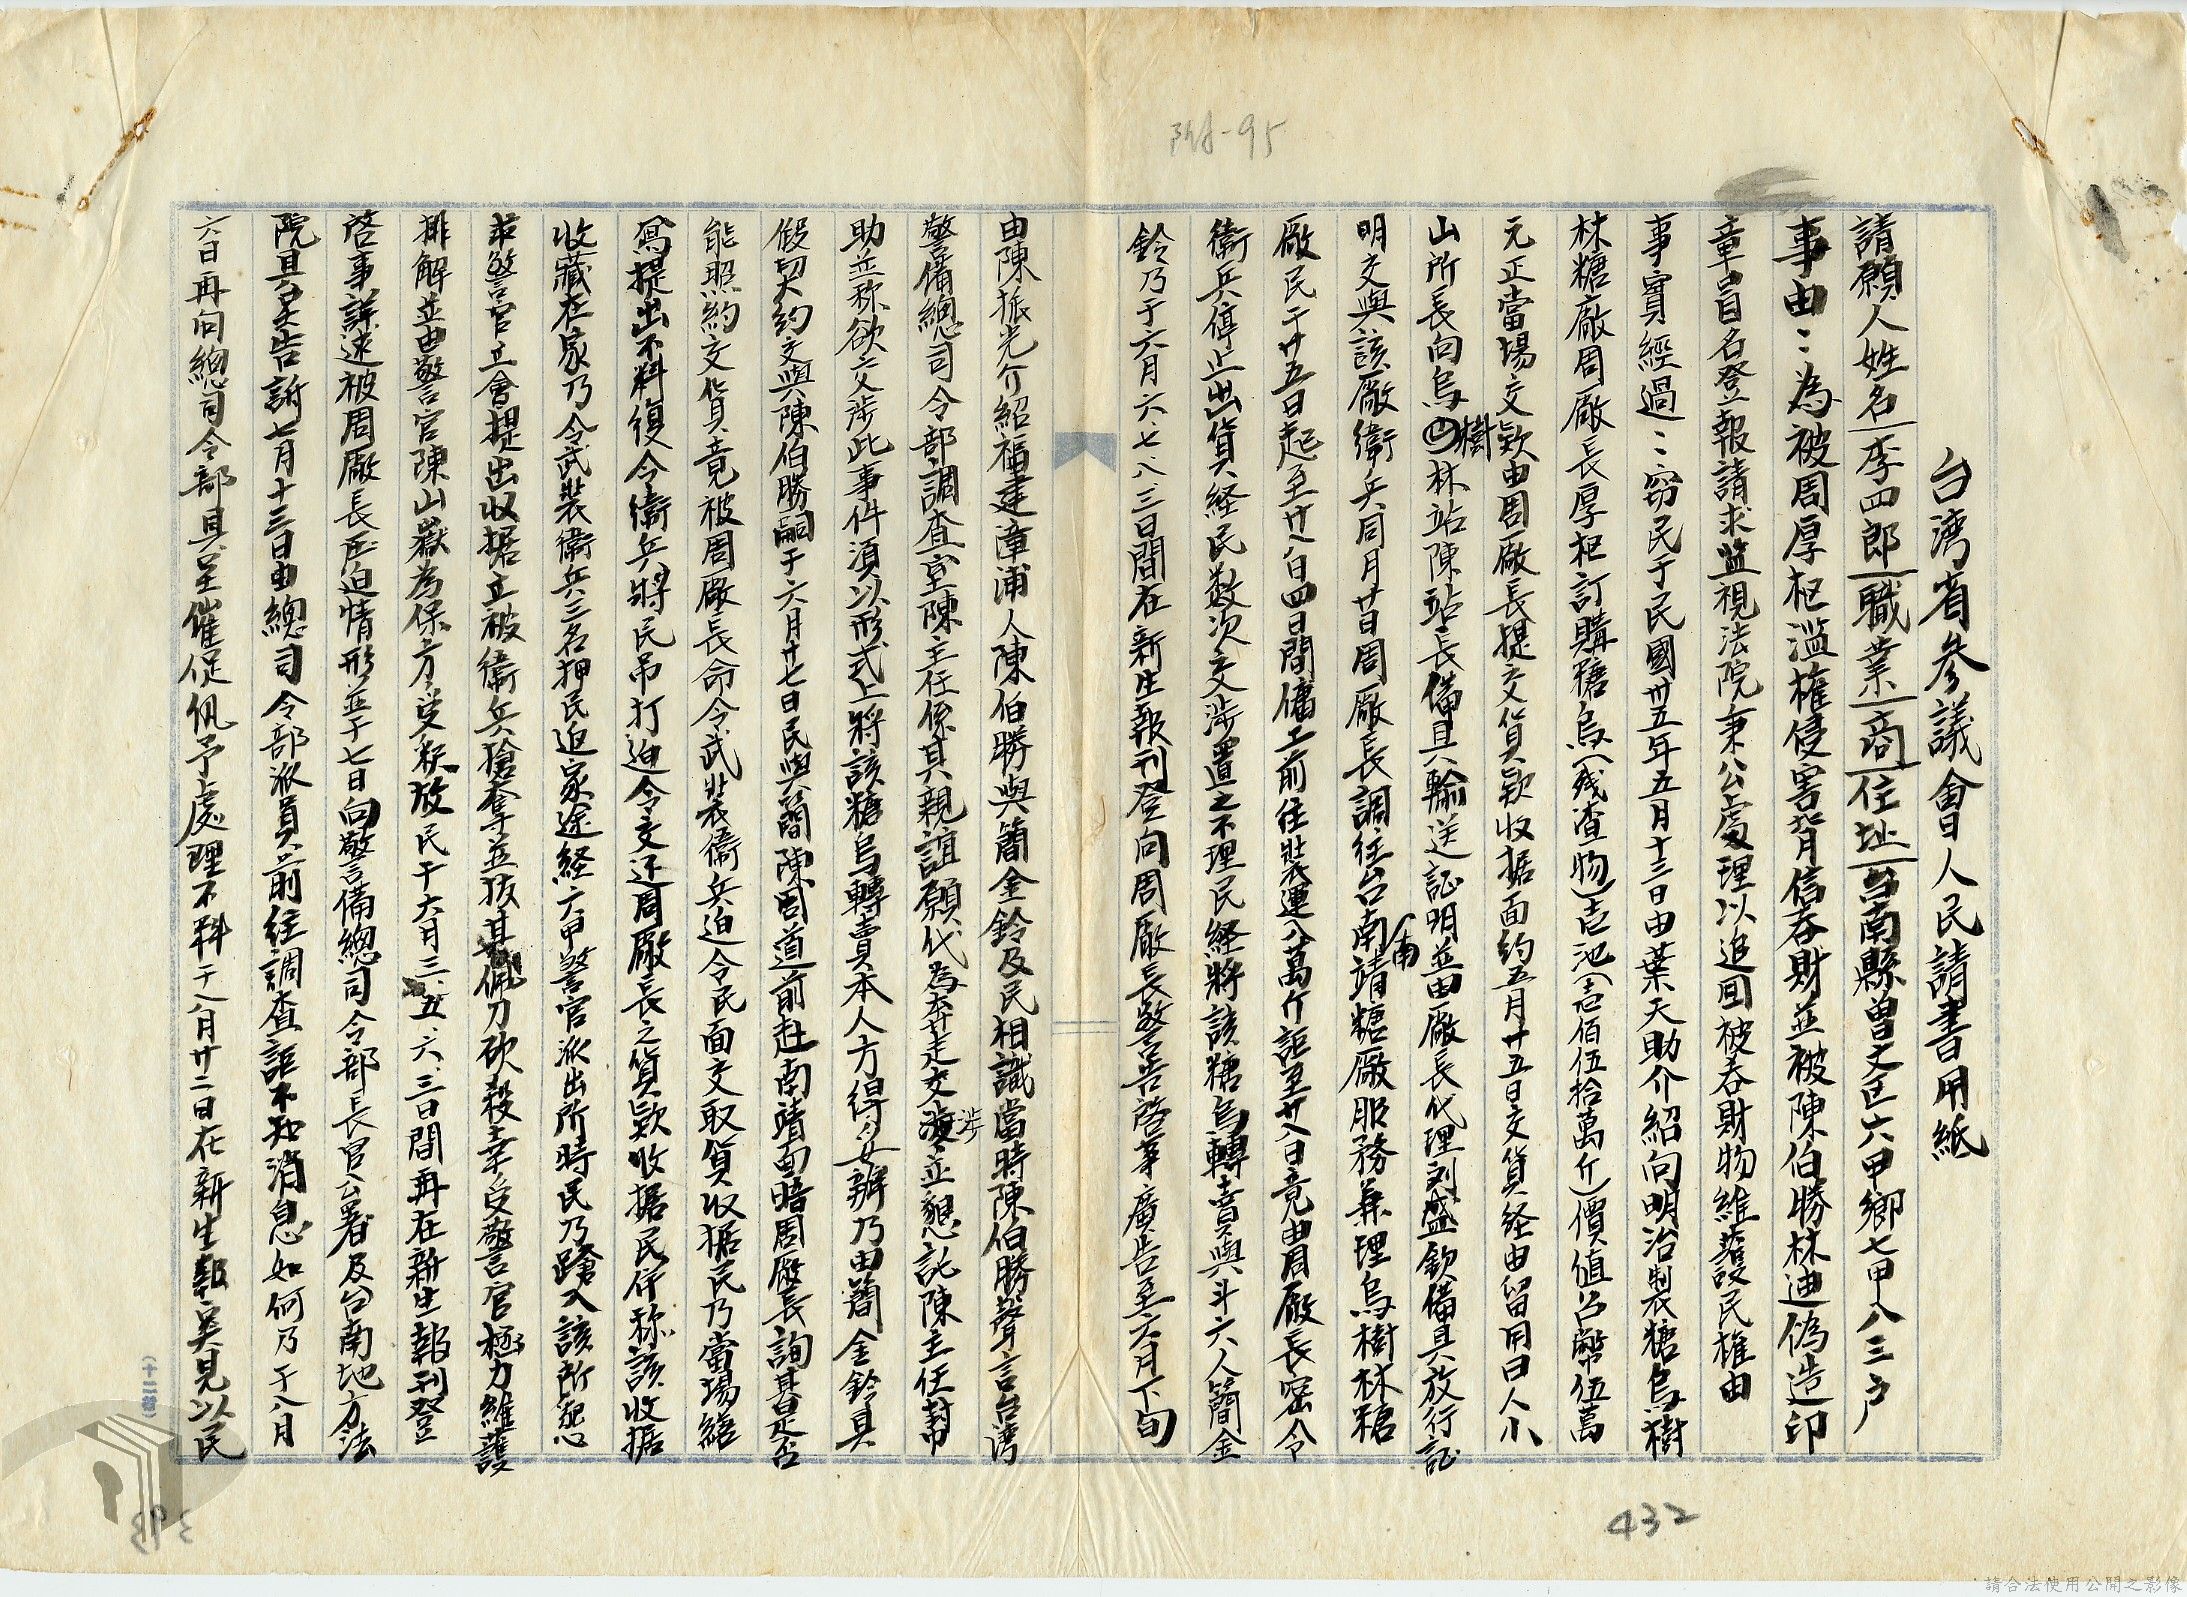 台湾省參議會人民請書用紙
請願人姓名李四郎職業商住址台南縣曽文区六甲鄉七甲八三戶
事由：為被周厚枢濫權侵害背信吞財並被陳伯勝林迪偽造印
章冒名登報請求监視法院秉公處理以追回被吞財物維護民權由
事實經過：窃民于民國卅五年五月十三日由葉天助介紹向明治製糖烏樹
林糖廠周廠長厚枢訂購糖烏(残渣物)壱池(壱佰伍拾萬斤)價值台幣伍萬
元正當場交欵由周廠長提交貨欵收据面約五月廿五日交貨経由留用日人小
山所長向烏樹林站陳站長備具輸送証明並由廠長代理刘盛欽備具放行証
明交與該廠衛兵同月廿日周廠長調往台南南靖糖廠服務兼理烏樹林糖
廠民于廿五日起至廿八日四日間傭工前往裝運八萬斤詎至廿八日竟由周廠長密令
衛兵停止出貨経民数次交涉置之不理民経將該糖烏轉賣與斗六人簡金
鈴乃于六月六、七、八、三日間在新生報刊登向周廠長警告啓事廣告至六月下旬
由陳振光介紹福建漳浦人陳伯勝與簡金鈴及民相識當時陳伯勝聲言台湾
警備總司令部調查室陳主任係其親誼願代為奔走交涉並懇託陳主任幫
助並称欲交涉此事件須以形式上將該糖烏轉賣本人方得安辦乃由簡金鈴具
假契約交與陳伯勝嗣于六月廿七日民與簡陳周道前赴南靖面晤周廠長詢其是否
能照約交貨竟被周廠長命令武裝衛兵迫令民面交取貨收据民乃當場繕
寫提出不料復令衛兵將民吊打迫令交还周廠長之貨欵收据民併称該收据
收藏在家乃令武裝衛兵三名押民迫家途経六甲警官派出所時民乃蹌入該所懇
求警官立會提出收据立被衛兵搶奪並拔其佩刀砍殺幸受警官極力維護
排解並由警官陳山嶽為保方受釈放民于六月三、五、六、三日間再在新生報刊登
啓事詳述被周廠長压迫情形並于七日向警備總司令部長官公署及台南地方法
院具呈告訴七月十三日由總司令部派員前往調查詎不知消息如何乃于八月
六日再向總司令部具呈催促仇予處理不料于八月廿二日在新生報突見以民
432
(十二行)
請合法使用公開之影像